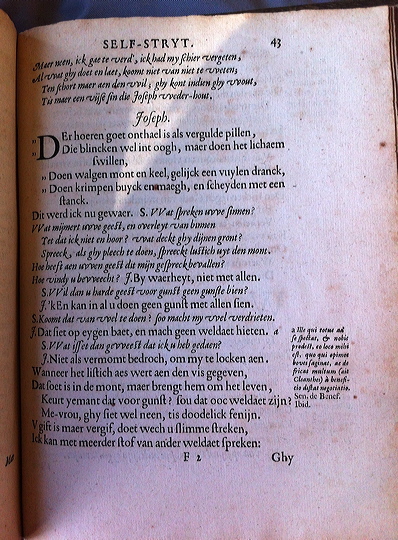 SELF-STRYT. 43
Maer neen, ick gae te verd', ick had my schier vergeten,
Al wat ghy doet en laet, koomt niet van niet te weten;
Ten schort maer aen den wil; ghy kont indien ghy wout,
Tis maer een vijse sin die Joseph weder-hout.
Joseph.
„ DEr hoeren goet onthael is als vergulde pillen,
„ Die blincken wel int oogh, maer doen het lichaem
swillen,
„ Doen walgen mont en keel, gelijck een vuylen dranck,
„ Doen krimpen buyck en maegh, en scheyden met een
stanck.
Dit werd ick nu gewaer. S. VVat spreken uwe sinnen?
VVat mijmert uwe geest, en overleyt van binnen
Tet dat ick niet en hoor? wat deckt ghy dijnen gront?
Spreeck, als ghy pleech te doen, spreeckt lustich uyt den mont.
Hoe heeft aen uwen geest dit mijn gespreck bevallen?
Hoe vindy u beweecht? J. By waerheyt, niet met allen.
S. VVil dan u harde geest voor gunst geen gunste bien?
J. 'kEn kan in al u doen geen gunst met allen sien.
S. Koomt dat van wel te doen? soo macht my wel verdrieten.
J. Dat siet op eygen baet, en mach geen weldaet hieten. a
S. VVat isset dan geweest dat ick u heb gedaen?
J. Niet als vermomt bedroch, om my te locken aen.
Wanneer het listich aes wert aen den vis gegeven,
Dat soet is in de mont, maer brengt hem om het leven,
Keurt yemant dat voor gunst? sou dat ooc weldaet zijn?
Me-vrou, ghy siet wel neen, tis doodelick fenijn.
V gift is maer vergif, doet wech u slimme streken,
Ick kan met meerder stof van ander weldaet spreken:
a Ille qui totus ad
se spectat, & nobis
prodest, eo loco mihi
est, quo qui opimos
boves saginat, ac de
fricat multum (ait
Cleanthes) à benefi-
tio distat negotiatio.
Sen. de Benef.
Ibid.
F 2 Ghy